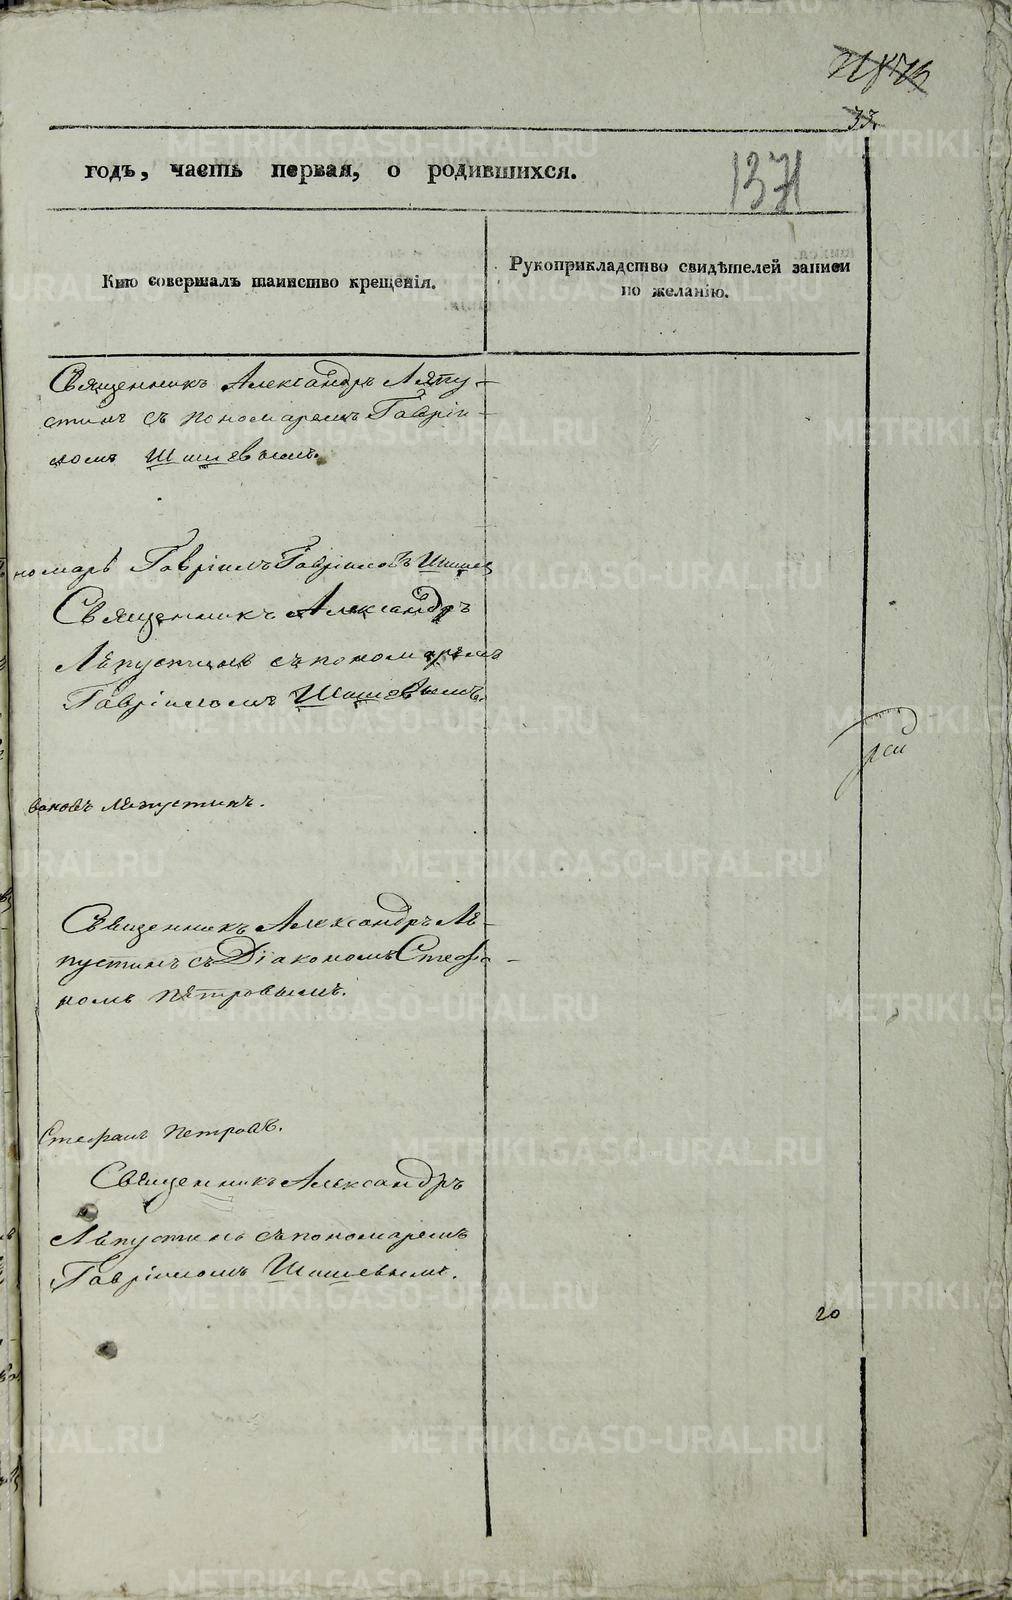 33.
годъ, часть первая, о родившихся.
1371
Кто совершалъ таинство крещенія.
Рукоприкладство свидѣтелей записи
по желанію.
Священникъ Александръ Ляпу-
стинъ съ пономаремъ Гавріи-
ломъ Шишевымъ.
номарь Гавріилъ Гавріиловъ Шишев
Священникъ Александръ
Ляпустинъ съ пономаремъ
Гавріиломъ Шишевымъ.
вановъ Ляпустинъ.
Священникъ Александръ Ля-
пустинъ съ Діакономъ Стефа-
номъ Петровымъ.
Стефанъ Петровъ.
Священникъ Александръ
Ляпустинъ съ пономаремъ
Гавріиломъ Шишевымъ.
20
METRIKI.GASO-URAL.RU